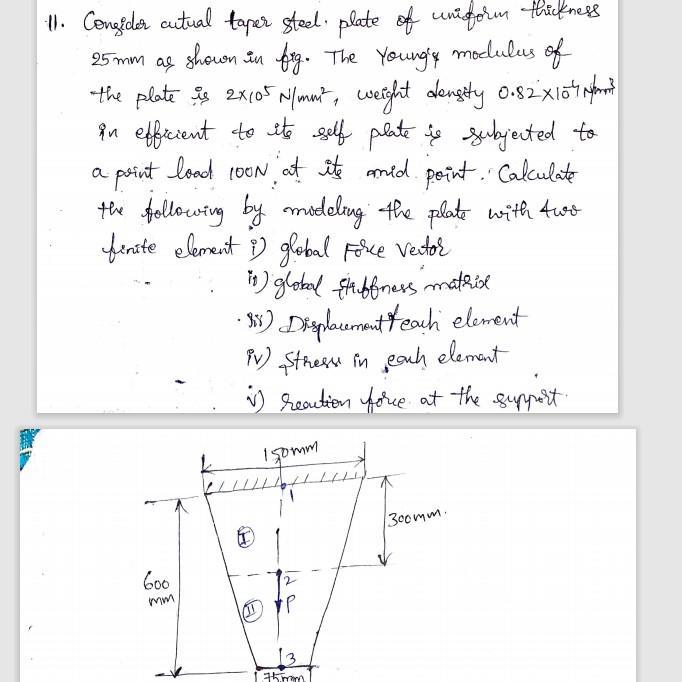 11. Consider actual taper steel. plate of uniform thickness
25mm as shown in fig. The Young's modulus of
the plate is 2x10⁵ N/mm², weight density 0.82x10⁻⁴ N/mm³
in efficient to its self plate is subjected to
a point load 100N, at its mid point. Calculate
the following by modeling the plate with two
finite element i) global Force Vector
ii) global stiffness matrix
iii) Displacement each element
iv) Stress in each element
v) reaction force at the support.
150mm
1
300mm.
I
600
mm
2
II
P
3
75mm